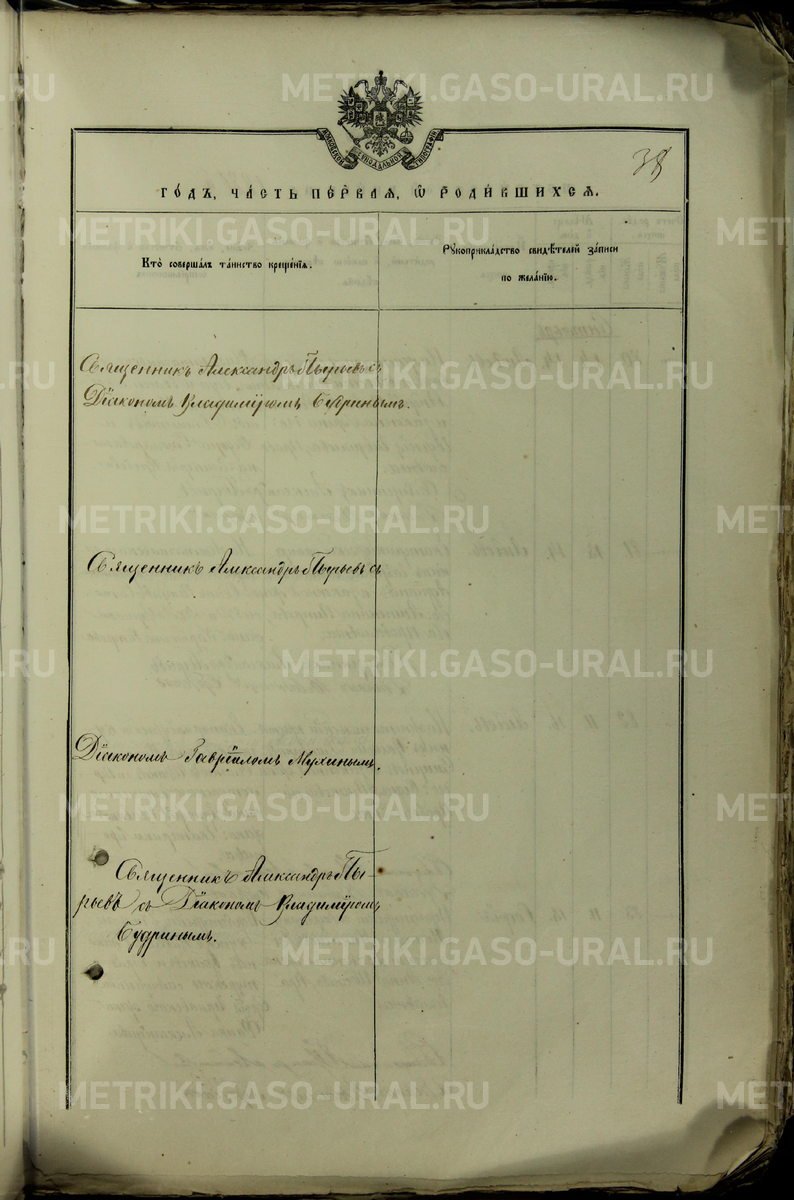 38
МОСКОВСКОЙ СѴНОДАЛЬНОЙ ТИПОГРАФІИ
ГО́ДЪ, ЧА́СТЬ ПЕ́РВАЯ, Ѡ҆ РОДИ́ВШИХСѦ.
Кто̀ соверша́лъ та́инство креще́нїѧ.
Рꙋкоприкла́дство свидѣ́телей за́писи
по жела́нїю.
Священникъ Александръ Пырьевъ съ
Діакономъ Владиміромъ Будринымъ.
Священникъ Александръ Пырьевъ съ
Діакономъ Гавріиломъ Мухинымъ.
Священникъ Александръ Пы-
рьевъ съ Діакономъ Владиміромъ
Будринымъ.
METRIKI.GASO-URAL.RU